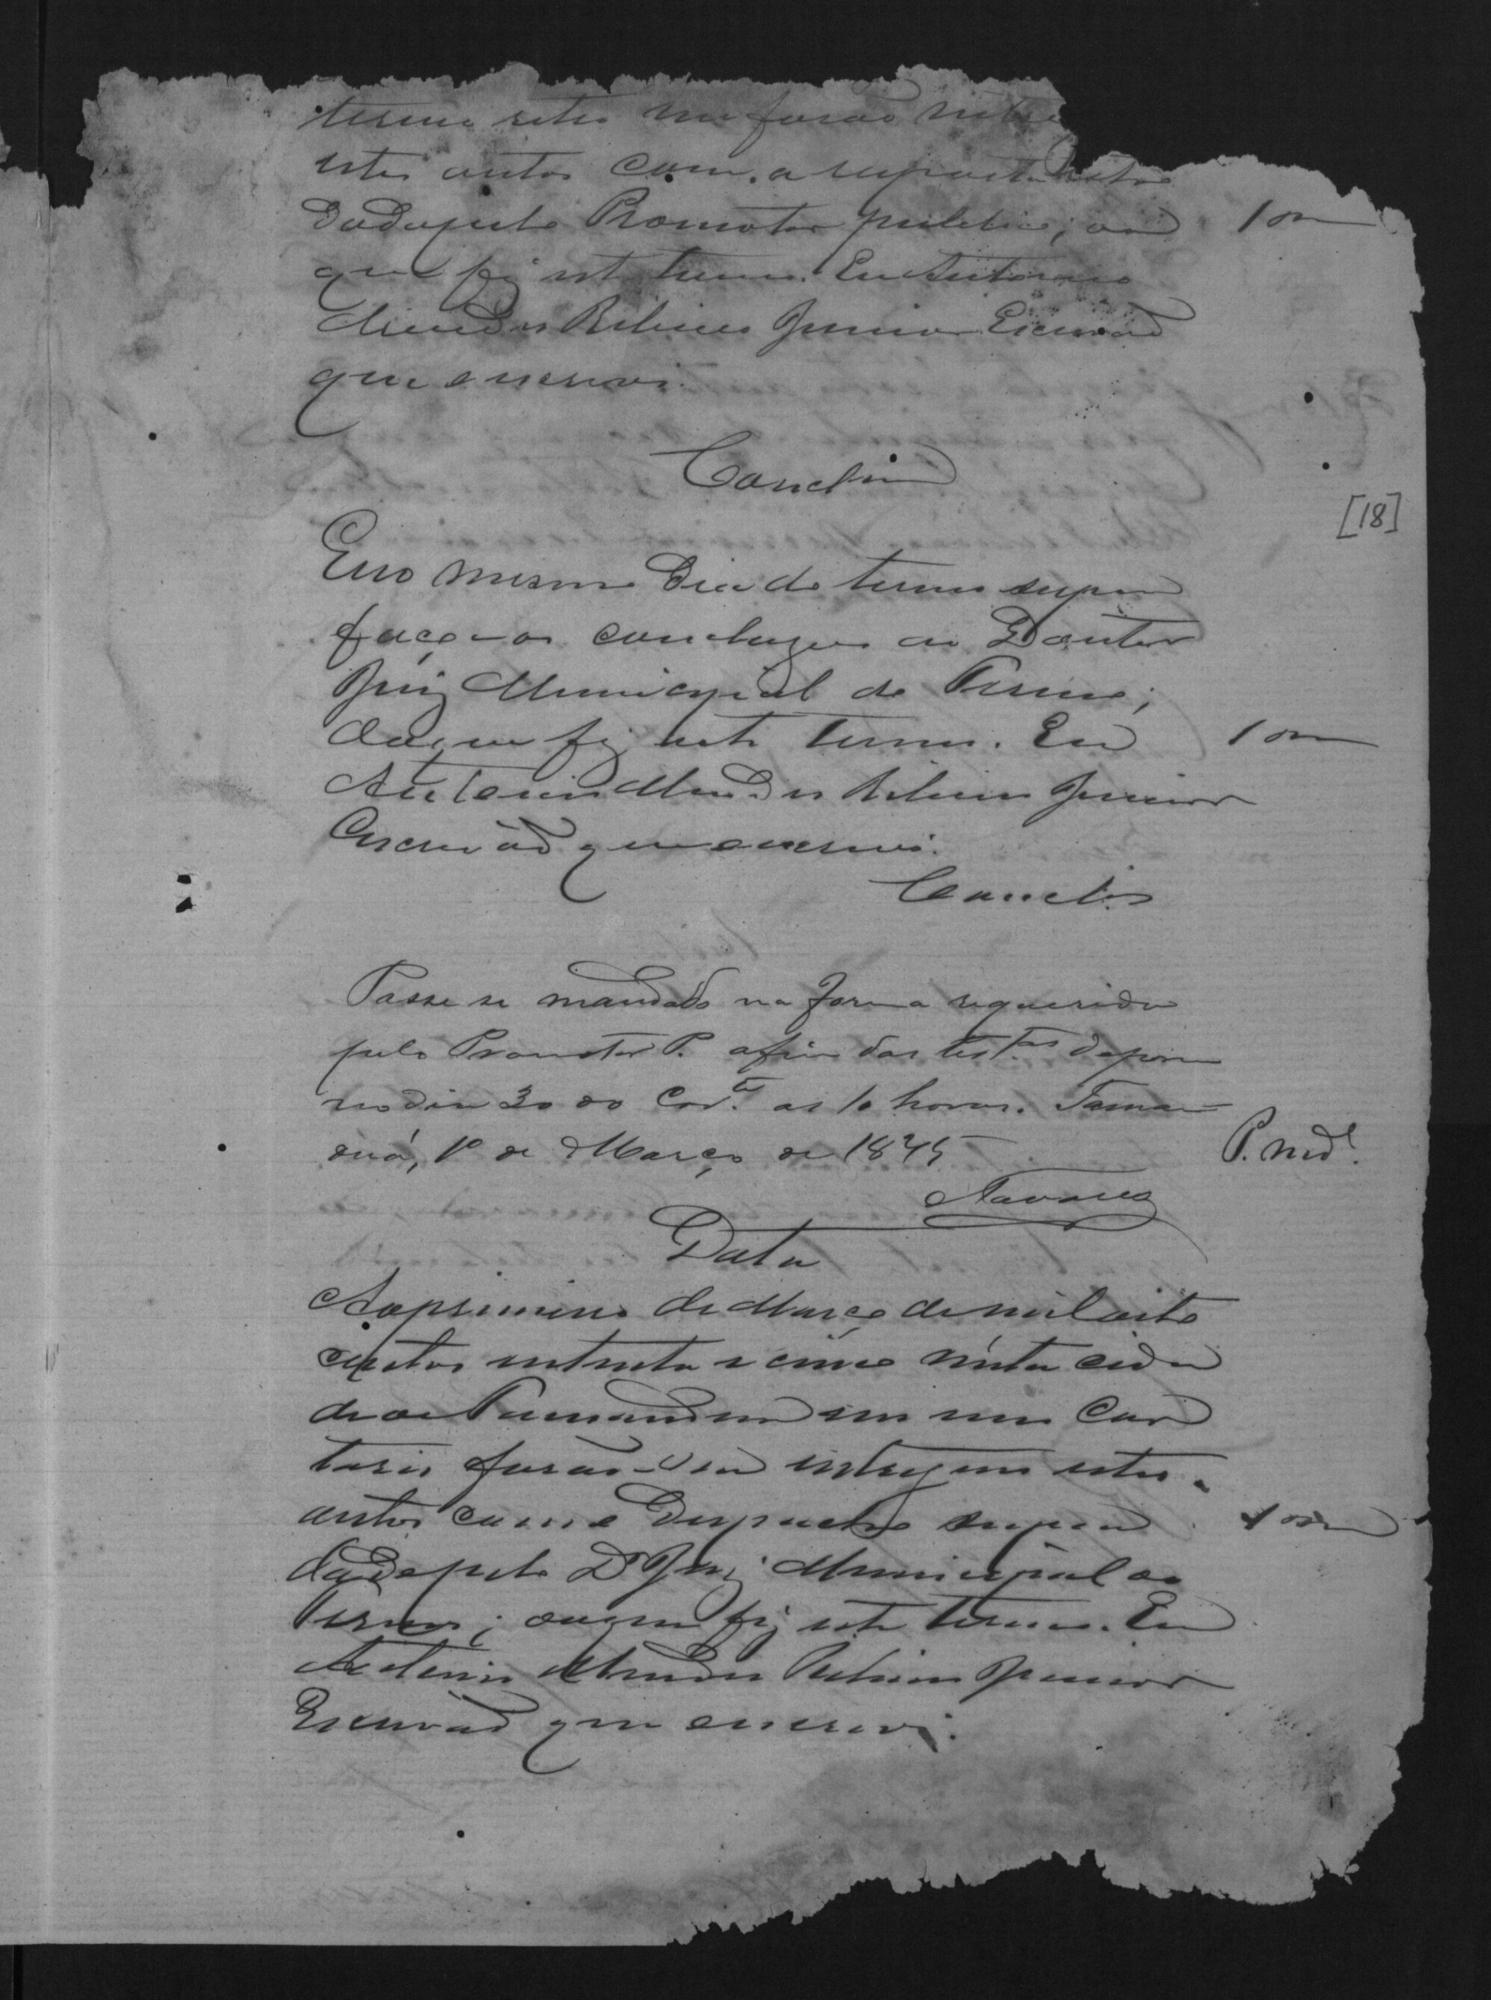 termo retro me forão
estes autos com a resposta retro
do dopusto Promotor publico; do
que fiz este termo. Eu Antonio
Mendes Ribeiro Junior Escrivão
que escrevi.
Conclm
[18]
E no mesmo dia do termo supra
faço-os concluzos ao Doutor
Juiz Municipal do Termo;
do que fiz este termo. Eu
Antonio Mendes Ribeiro Junior
Escrivão que escrevi.
Conclos
Passe se mandado na forma requerida
pelo Promotor P. afim das test.as deporem
no dia 30 do Cor.te as 10 horas. Taman
duá, 1º de Março de 1875
P. md.
Tavares
Data
Ao primeiro de Março de mil oito
centos setenta e cinco nésta cida
de de Tamandua em meu Car
torio forão-me entregues estes
autos com o Despacho supra
do Dr Juiz Municipal do
Termo; do que fiz este termo. Eu
Antonio Mendes Ribeiro Junior
Escrivão que escrevi.